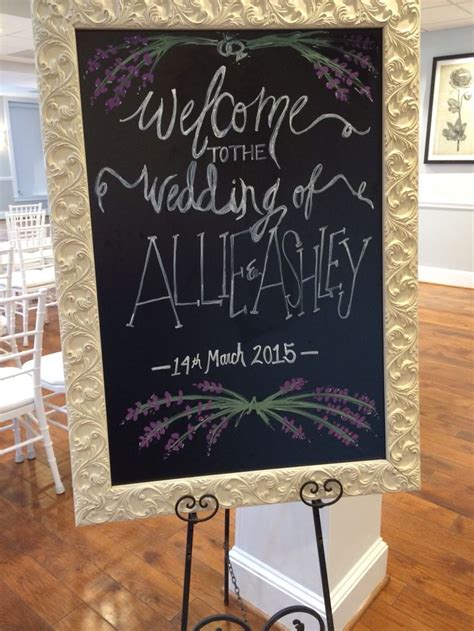 Welcome
TO THE
Wedding of
ALLIE & ASHLEY
-14th March 2015-